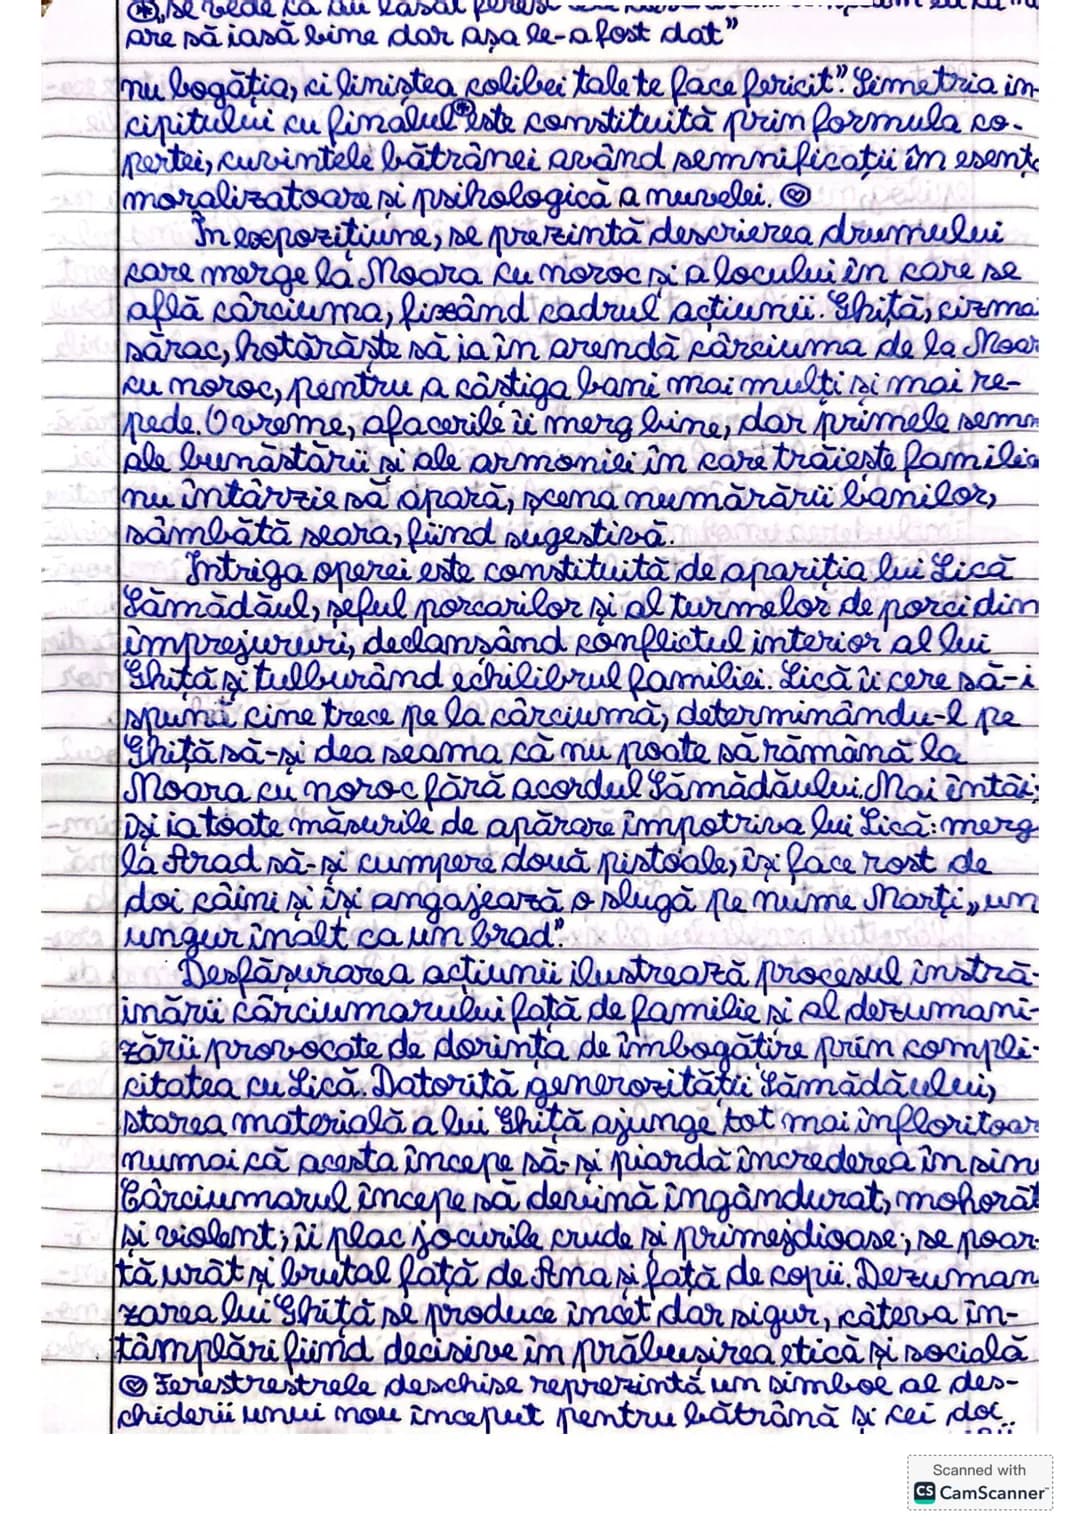 ⊛„se vede că au lăsat ferest
are să iasă bine dar așa le-a fost dat”
nu bogăția, ci liniștea colibei tale te face fericit”. Simetria in-
cipitului cu finalul⊛ este constituită prin formula co-
pertei, cuvintele bătrânei având semnificații în esenț
moralizatoare și psihologică a nuvelei. ♡
În expozițiune, se prezintă descrierea drumului
care merge la Moara cu noroc și a locului în care se
află cârciuma, fixând cadrul acțiunii. Ghiță, cizma
sărac, hotărăște să ia în arendă cârciuma de la Moar
cu noroc, pentru a câștiga bani mai mulți și mai re-
pede. O vreme, afacerile îi merg bine, dar primele semn
ale bunăstării și ale armoniei în care trăiește familia
nu întârzie să apară, scena numărării banilor,
sâmbătă seara, fiind sugestivă.
Intriga operei este constituită de apariția lui Lică
Sămădăul, șeful porcarilor și al turmelor de porci din
împrejururi, declanșând conflictul interior al lui
Ghiță și tulburând echilibrul familiei. Lică îi cere să-i
spună cine trece pe la cârciumă, determinându-l pe
Ghiță să-și dea seama că nu poate să rămână la
Moara cu noroc fără acordul Sămădăului. Mai întâi,
își ia toate măsurile de apărare împotriva lui Lică: merg
la Arad să-și cumpere două pistoale, își face rost de
doi câini și își angajează o slugă pe nume Marți „un
ungur înalt ca un brad”.
Desfășurarea acțiunii ilustrează procesul înstră-
inării cârciumarului față de familie și al dezumani-
zării provocate de dorința de îmbogățire prin compli-
citatea cu Lică. Datorită generozității Sămădăului,
starea materială a lui Ghiță ajunge tot mai înfloritoar
numai că acesta începe să-și piardă încrederea în sin
Cârciumarul începe să devină îngândurat, mohorât
și violent; îi plac jocurile crude și primejdioase; se poar-
tă urât și brutal față de Ana și față de copii. Dezuman
zarea lui Ghiță se produce încet dar sigur, câteva în-
tâmplări fiind decisive în prăbușirea etică și socială
♡ Ferestrestrele deschise reprezintă un simbol al des-
chiderii unui nou început pentru bătrână și cei doi
Scanned with
CS CamScanner